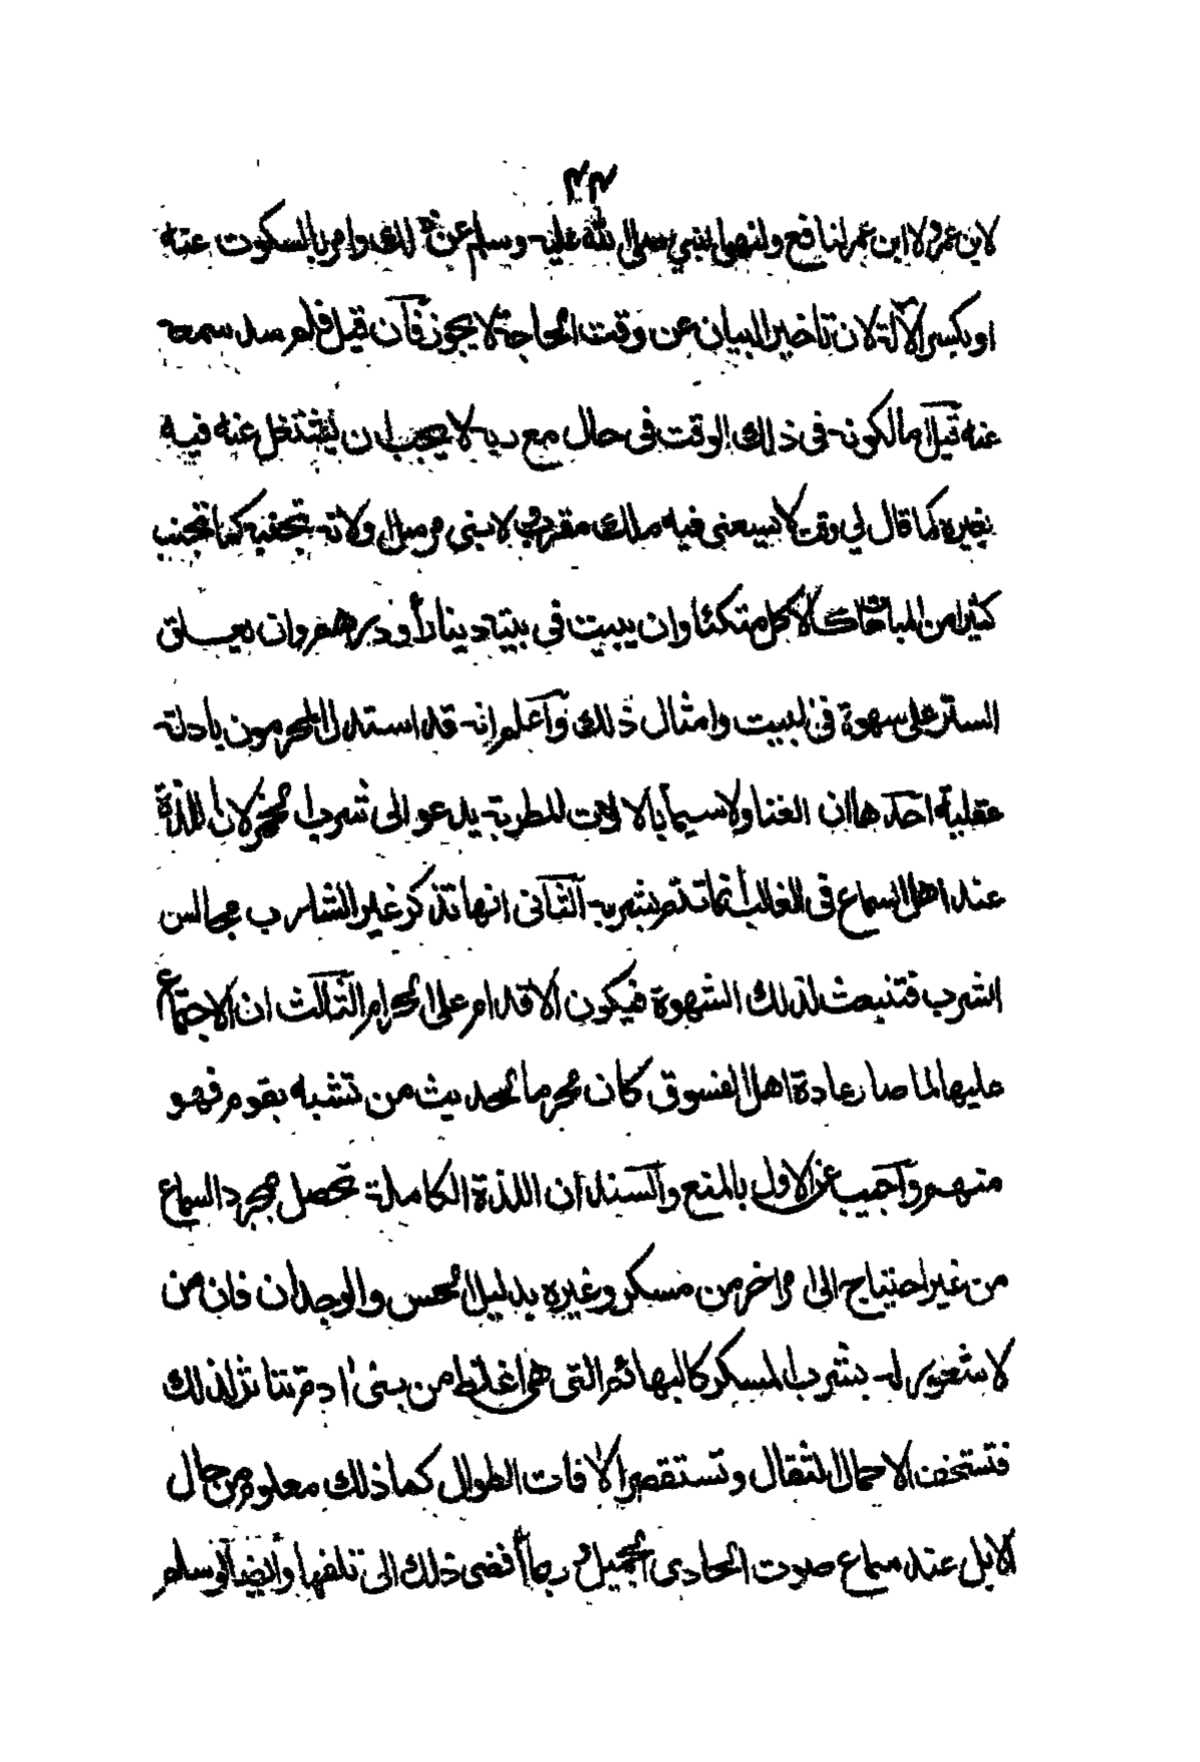 ٢٣
لابن عمر ولا ابن عمر لنافع ولنهى النبي صلى الله عليه وسلم عن ذلك وامر بالسكوت عنه
او بكسر الآلة لان تاخير البيان عن وقت الحاجة لا يجوز فآن قيل فلم سد سمعه
عنه قيل اما لكونه فى ذلك الوقت فى حال مع ربه لا يجب ان يشتغل عنه فيه
بغيره كما قال لي وقت لا يسعنى فيه ملك مقرب ولا نبى مرسل ولانه تجنبه كما تجنب
كثيرا من المباحات كالاكل متكئا وان يبيت فى بيته دينارأ ودرهم وان يعلق
الستر على سهوة فى البيت وامثال ذلك وآعلم انه قد استدل المحرمون بادلة
عقلية احدها ان الغنا ولاسيما بالالات المطربة يدعو الى شرب الخمر لان اللذة
عند اهل السماع فى الغالب أنما تتم بشربه الثآنى انها تذكر غير الشارب مجالس
الشرب فتنبعث لذلك الشهوة فيكون الاقدام على الحرام الثآلث ان الاجتماع
عليها لما صار عادة اهل الفسوق كان محرما لحديث من تشبه بقوم فهو
منهم وآجيب عن الاول بالمنع وآلسند ان اللذة الكاملة تحصل بمجرد السماع
من غير احتياج الى امر اخر من مسكر وغيره بدليل الحس والوجدان فان من
لا شعور له بشرب المسكر كالبهائم التى هى اغلظ من بنى ادم تتاثر لذلك
فتستخف الاحمال الثقال وتستقصر الافات الطوال كما ذلك معلوم من حال
الابل عند سماع صوت الحادى الجميل وربما أفضى ذلك الى تلفها وأيضآ لو سلم